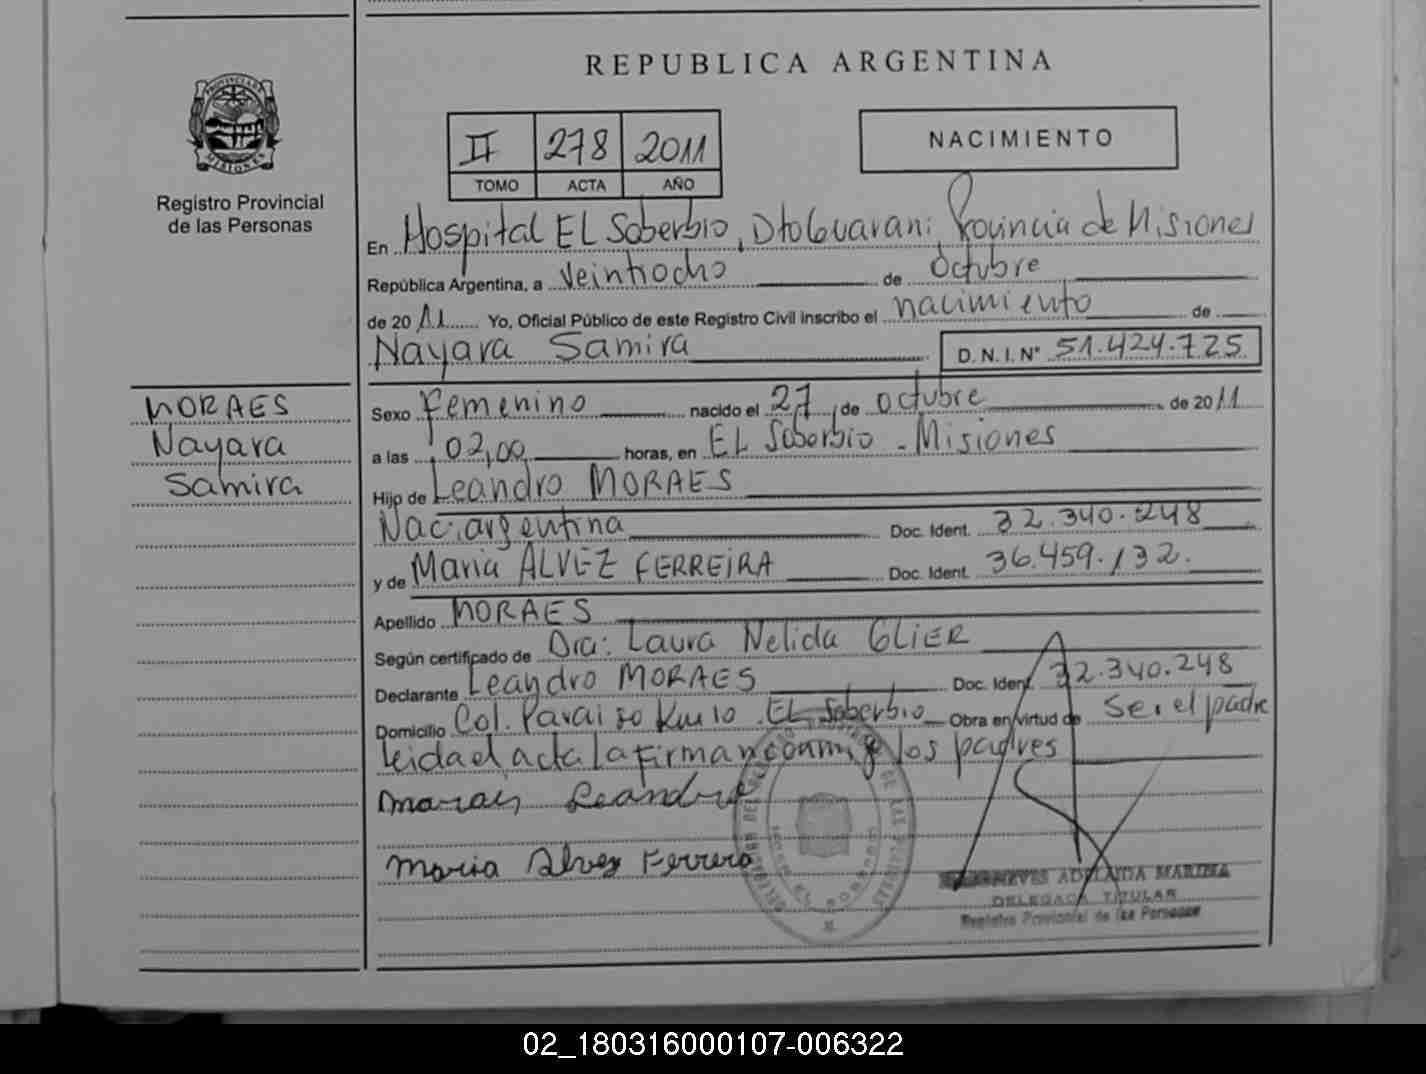 REPUBLICA ARGENTINA
PROVINCIA DE MISIONES
Registro Provincial
de las Personas
II 278 2011
TOMO ACTA AÑO
NACIMIENTO
En Hospital EL Soberbio, Dto Guarani, Provincia de Misiones
República Argentina, a Veintiocho de Octubre
de 2011 Yo, Oficial Público de este Registro Civil inscribo el nacimiento de
Nayara Samira D.N.I. Nº 51.424.725
MORAES
Nayara
Samira
Sexo Femenino nacido el 27 de octubre de 2011
a las 02,00 horas, en EL Soberbio - Misiones
Hijo de Leandro MORAES
Nac. argentina Doc. Ident. 32.340.248
y de Maria ALVEZ FERREIRA Doc. Ident. 36.459.132.
Apellido MORAES
Según certificado de Dra: Laura Nelida GLIER
Declarante Leandro MORAES Doc. Ident. 32.340.248
Domicilio Col. Paraiso Km 10 EL Soberbio Obra en virtud de Ser el padre
leida el acta la firman conmigo los padres
Moraes Leandro
Maria Alvez Ferrera
ADELAIDA MARINA
DELEGADA TITULAR
Registro Provincial de las Personas
02_180316000107-006322